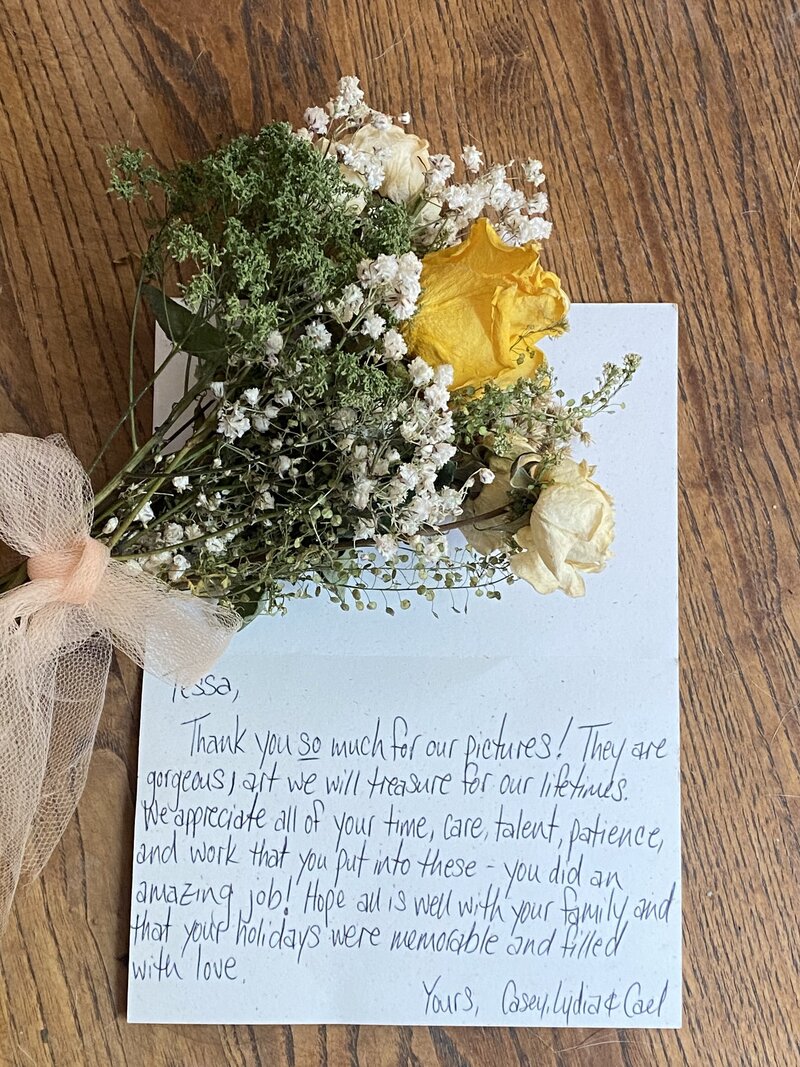 Tessa,
Thank you so much for our pictures! They are
gorgeous, art we will treasure for our lifetimes.
We appreciate all of your time, care, talent, patience,
and work that you put into these - you did an
amazing job! Hope all is well with your family and
that your holidays were memorable and filled
with love.
Yours, Casey, Lydia & Cael